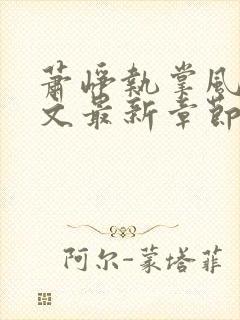 萧峥执掌风
文最新章节
阿尔-蒙塔菲